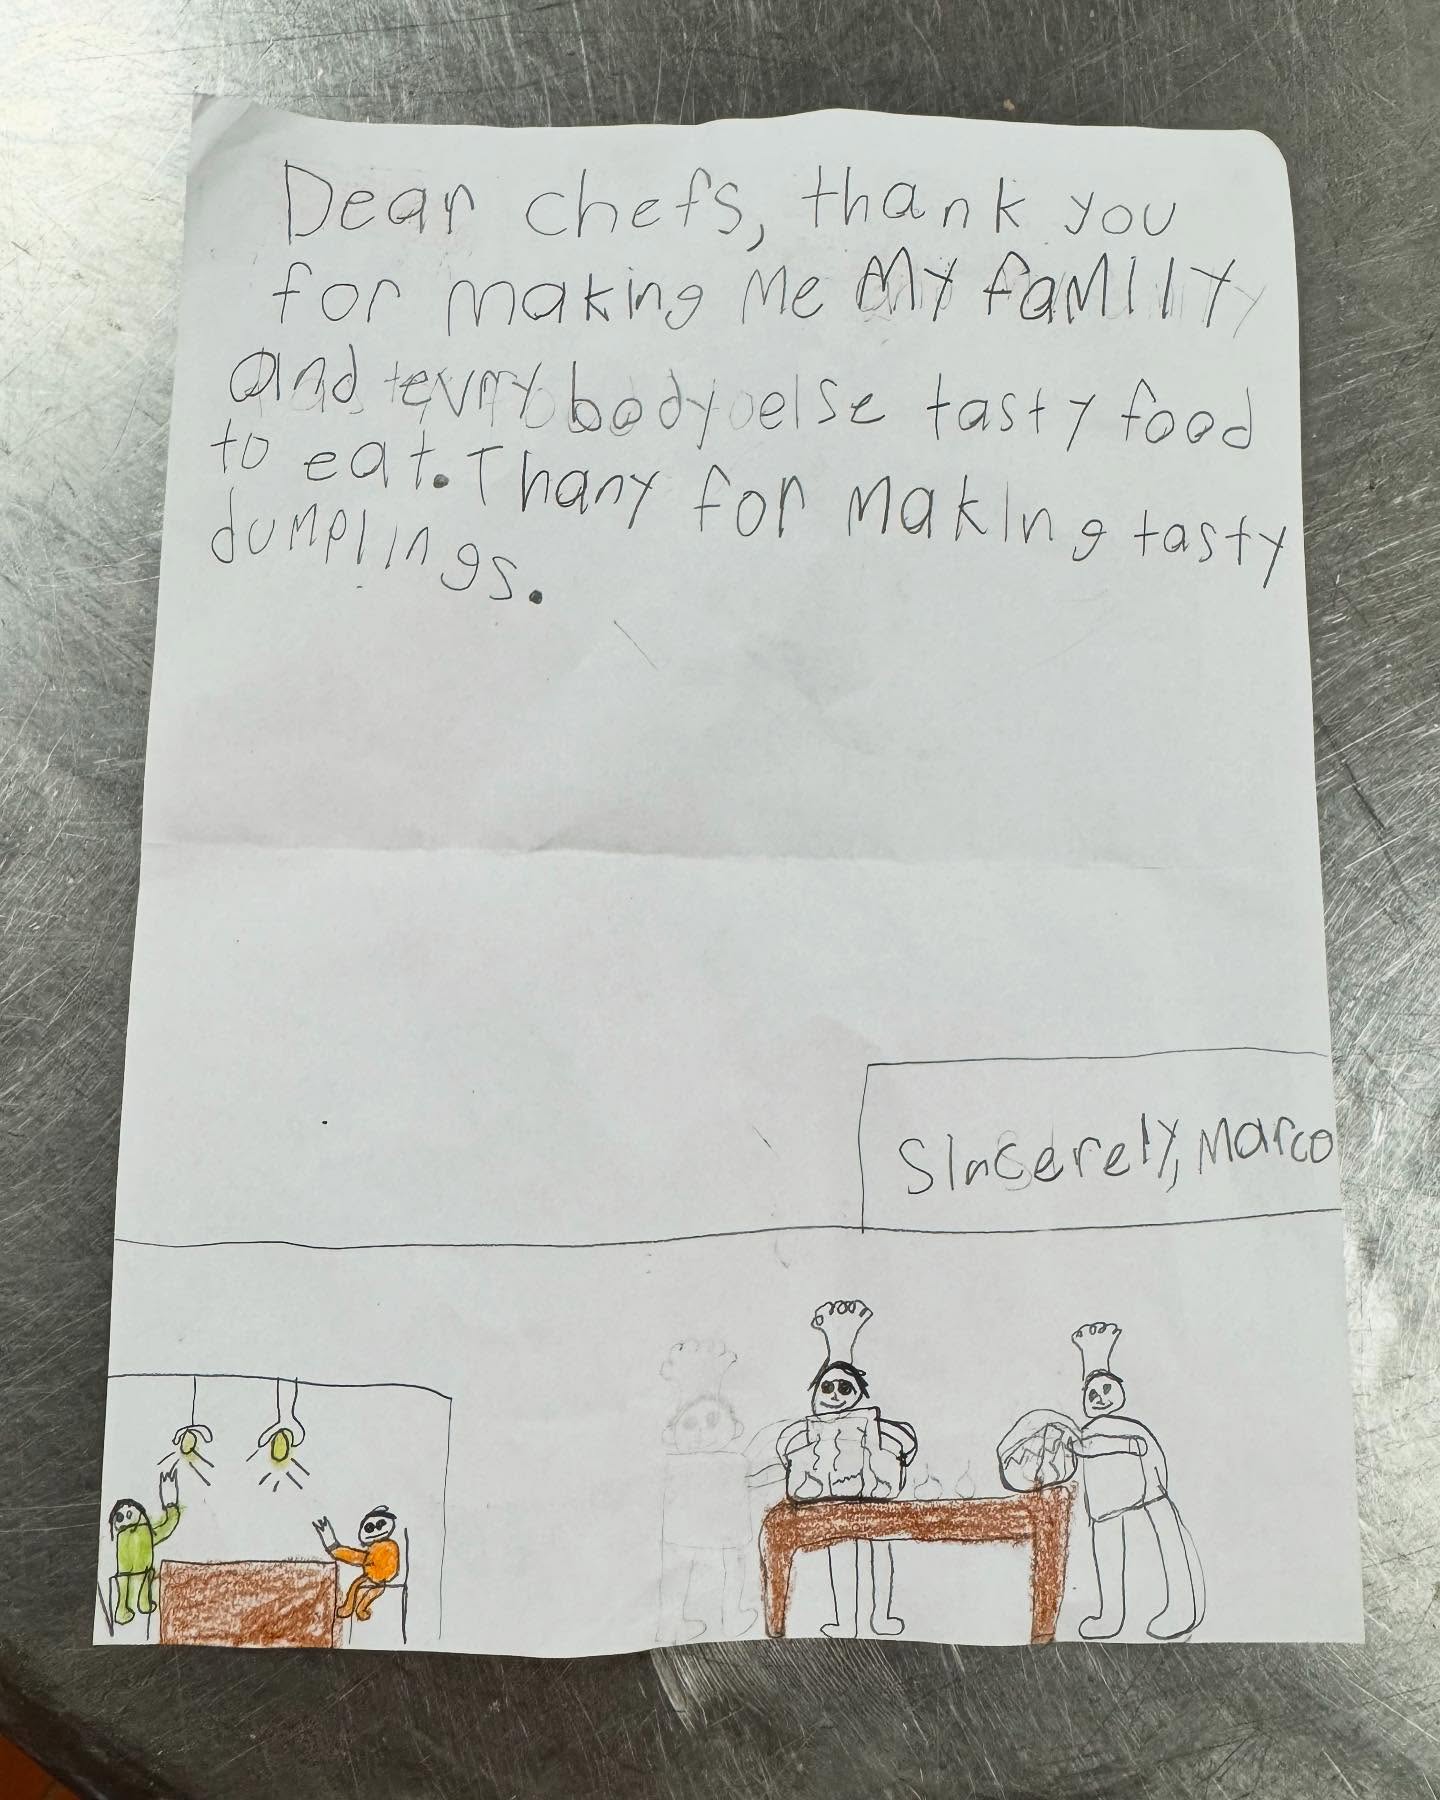 Dear chefs, thank you
for making me my family
and evry body else tasty food
to eat. Thany for making tasty
dumplings.
Sincerely, Marco